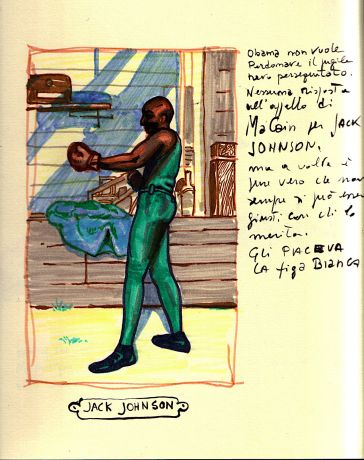 Obama non vuole
Perdonare il pugile
nero perseguitato.
Nessuna risposta
nell'appello di
McCain per JACK
JOHNSON,
ma a volte è
pure vero che non
sempre si può essere
giusti con chi lo
merita.
Gli PIACEVA
LA figa BIANCA
JACK JOHNSON